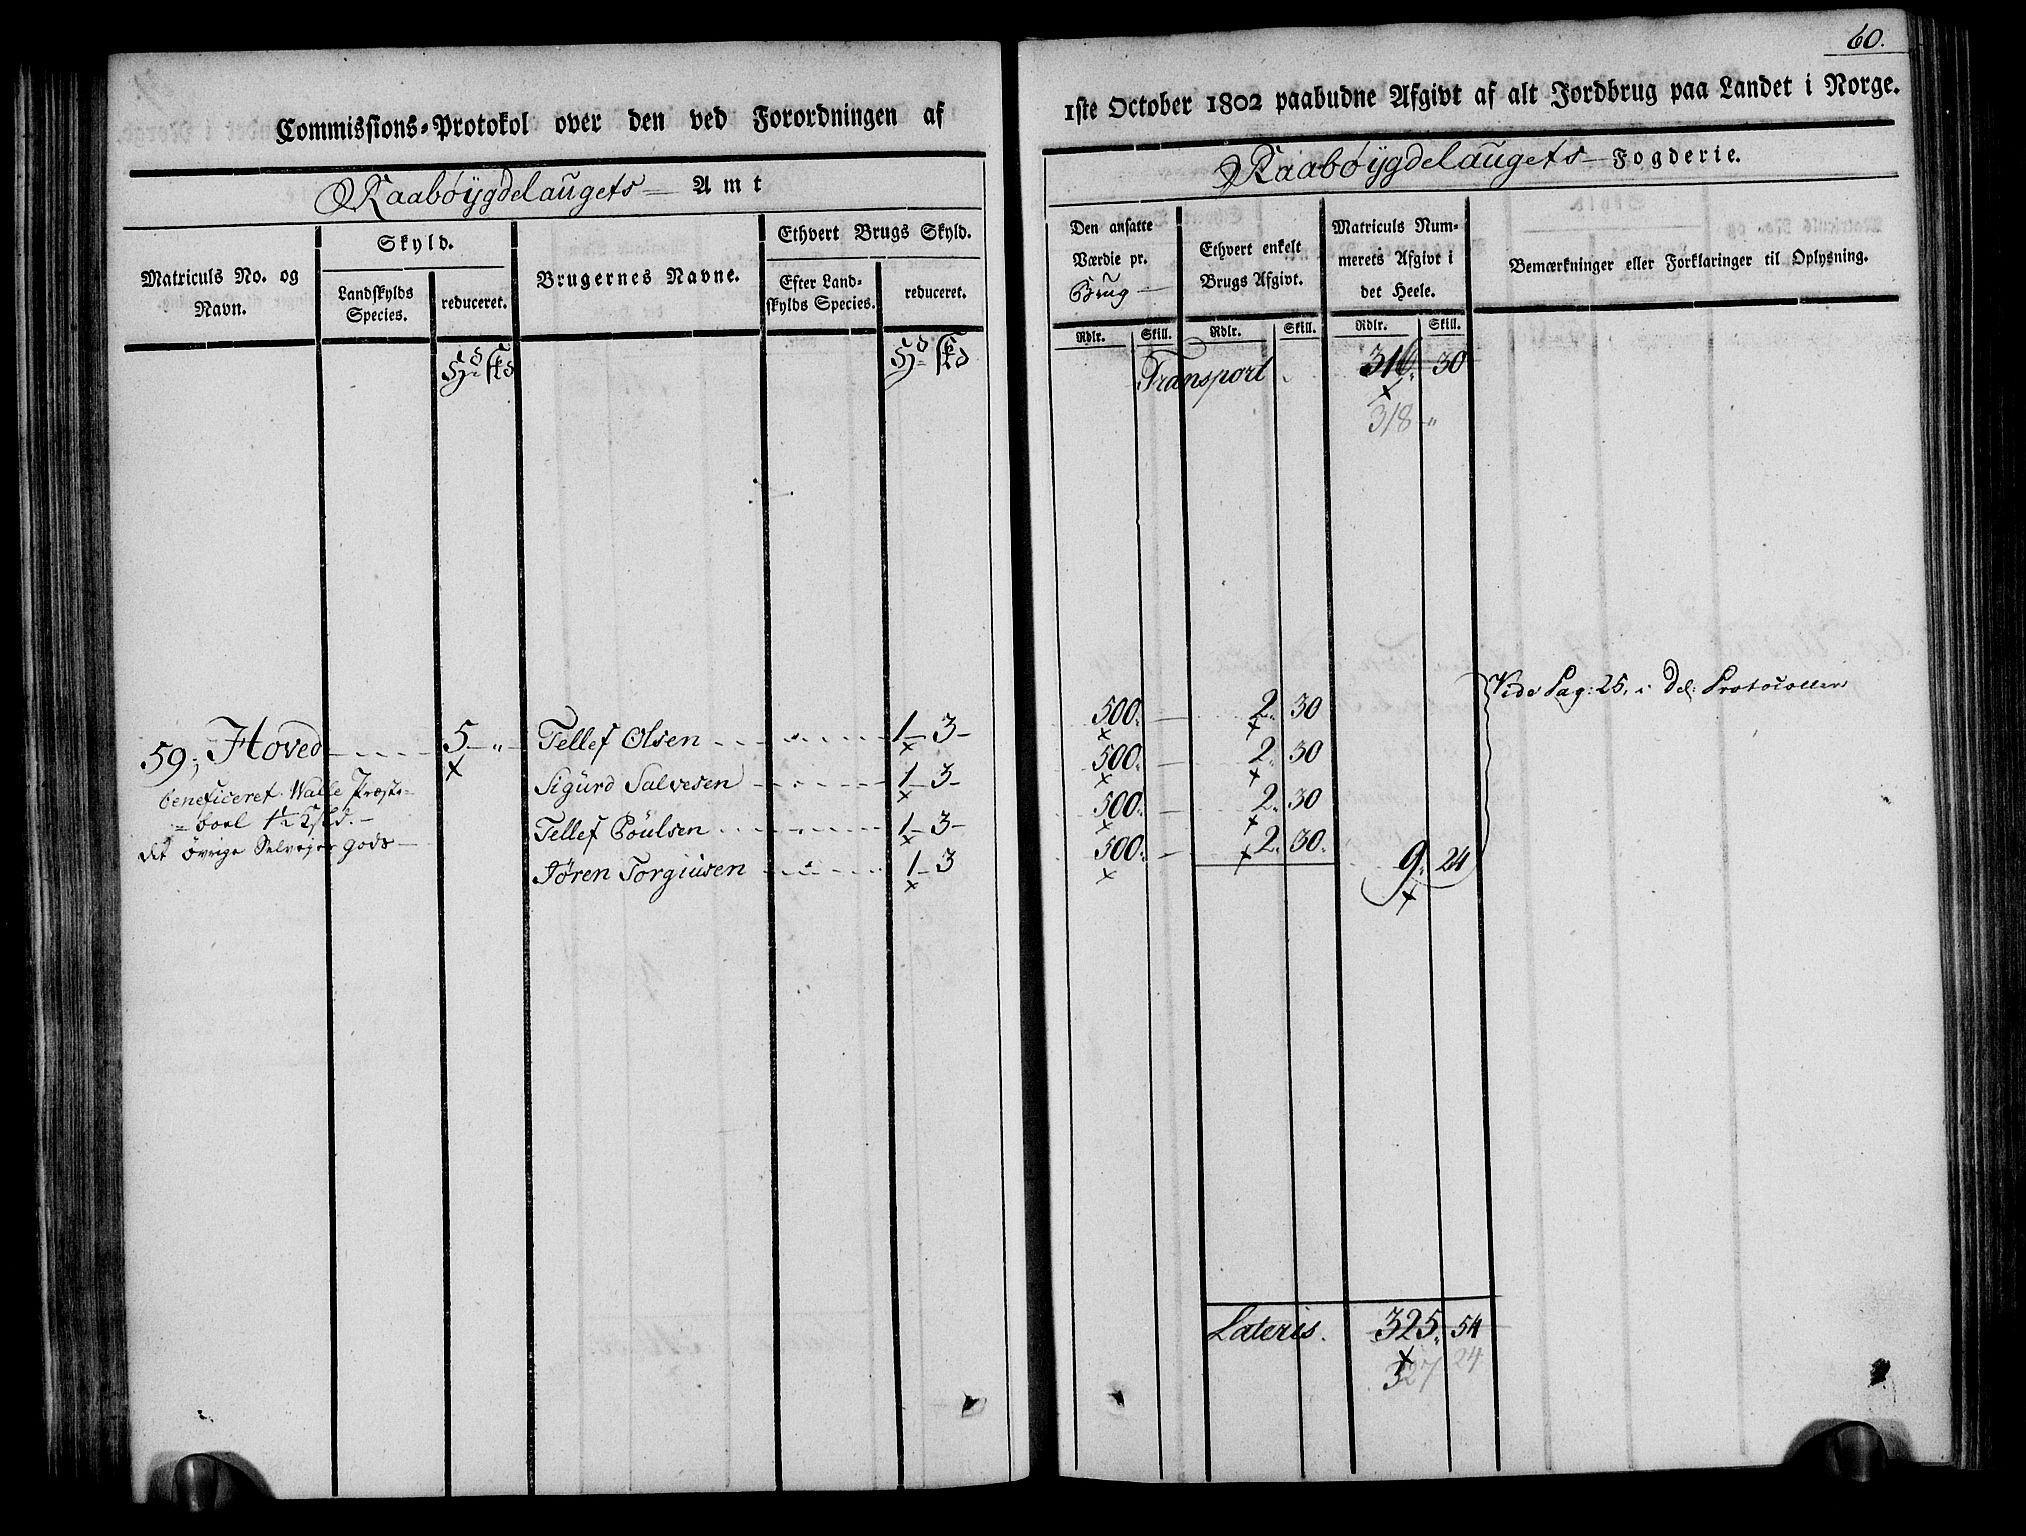 60.
Commissions-Protokol over den ved Forordningen af
1ste October 1802 paabudne Afgivt af alt Jordbrug paa Landet i Norge.
Raabøygdelaugets Amt
Raabøygdelaugets Fogderie.
Matriculs No. og Navn.
Skyld.
Landskylds Species.
reduceret.
Brugernes Navne.
Ethvert Brugs Skyld.
Efter Landskylds Species.
reduceret.
Den ansatte Værdie pr. Brug
Ethvert enkelt Brugs Afgivt.
Matriculs Nummerets Afgivt i det Heele.
Bemærkninger eller Forklaringer til Oplysning.
Rdlr. Skill. Rdlr. Skill. Rdlr. Skill.
Transport 316. 30
318 "
Vide Pag: 25, i Del: Protocollen
59, Hoved 5 " Tellef Olsen 1 - 3 - 500. 2. 30
beneficeret Walle Præste- Sigurd Salvesen 1 - 3 - 500. 2. 30
= boel 1½ Tellef Poulsen 1 - 3 - 500. 2. 30
det øvrige Selveyer gods Jøren Torgiusen 1 - 3 500. 2. 30. 9. 24
Lateris. 325. 54
327 24